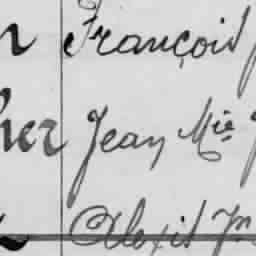 François
her Jean Mie
Alexis